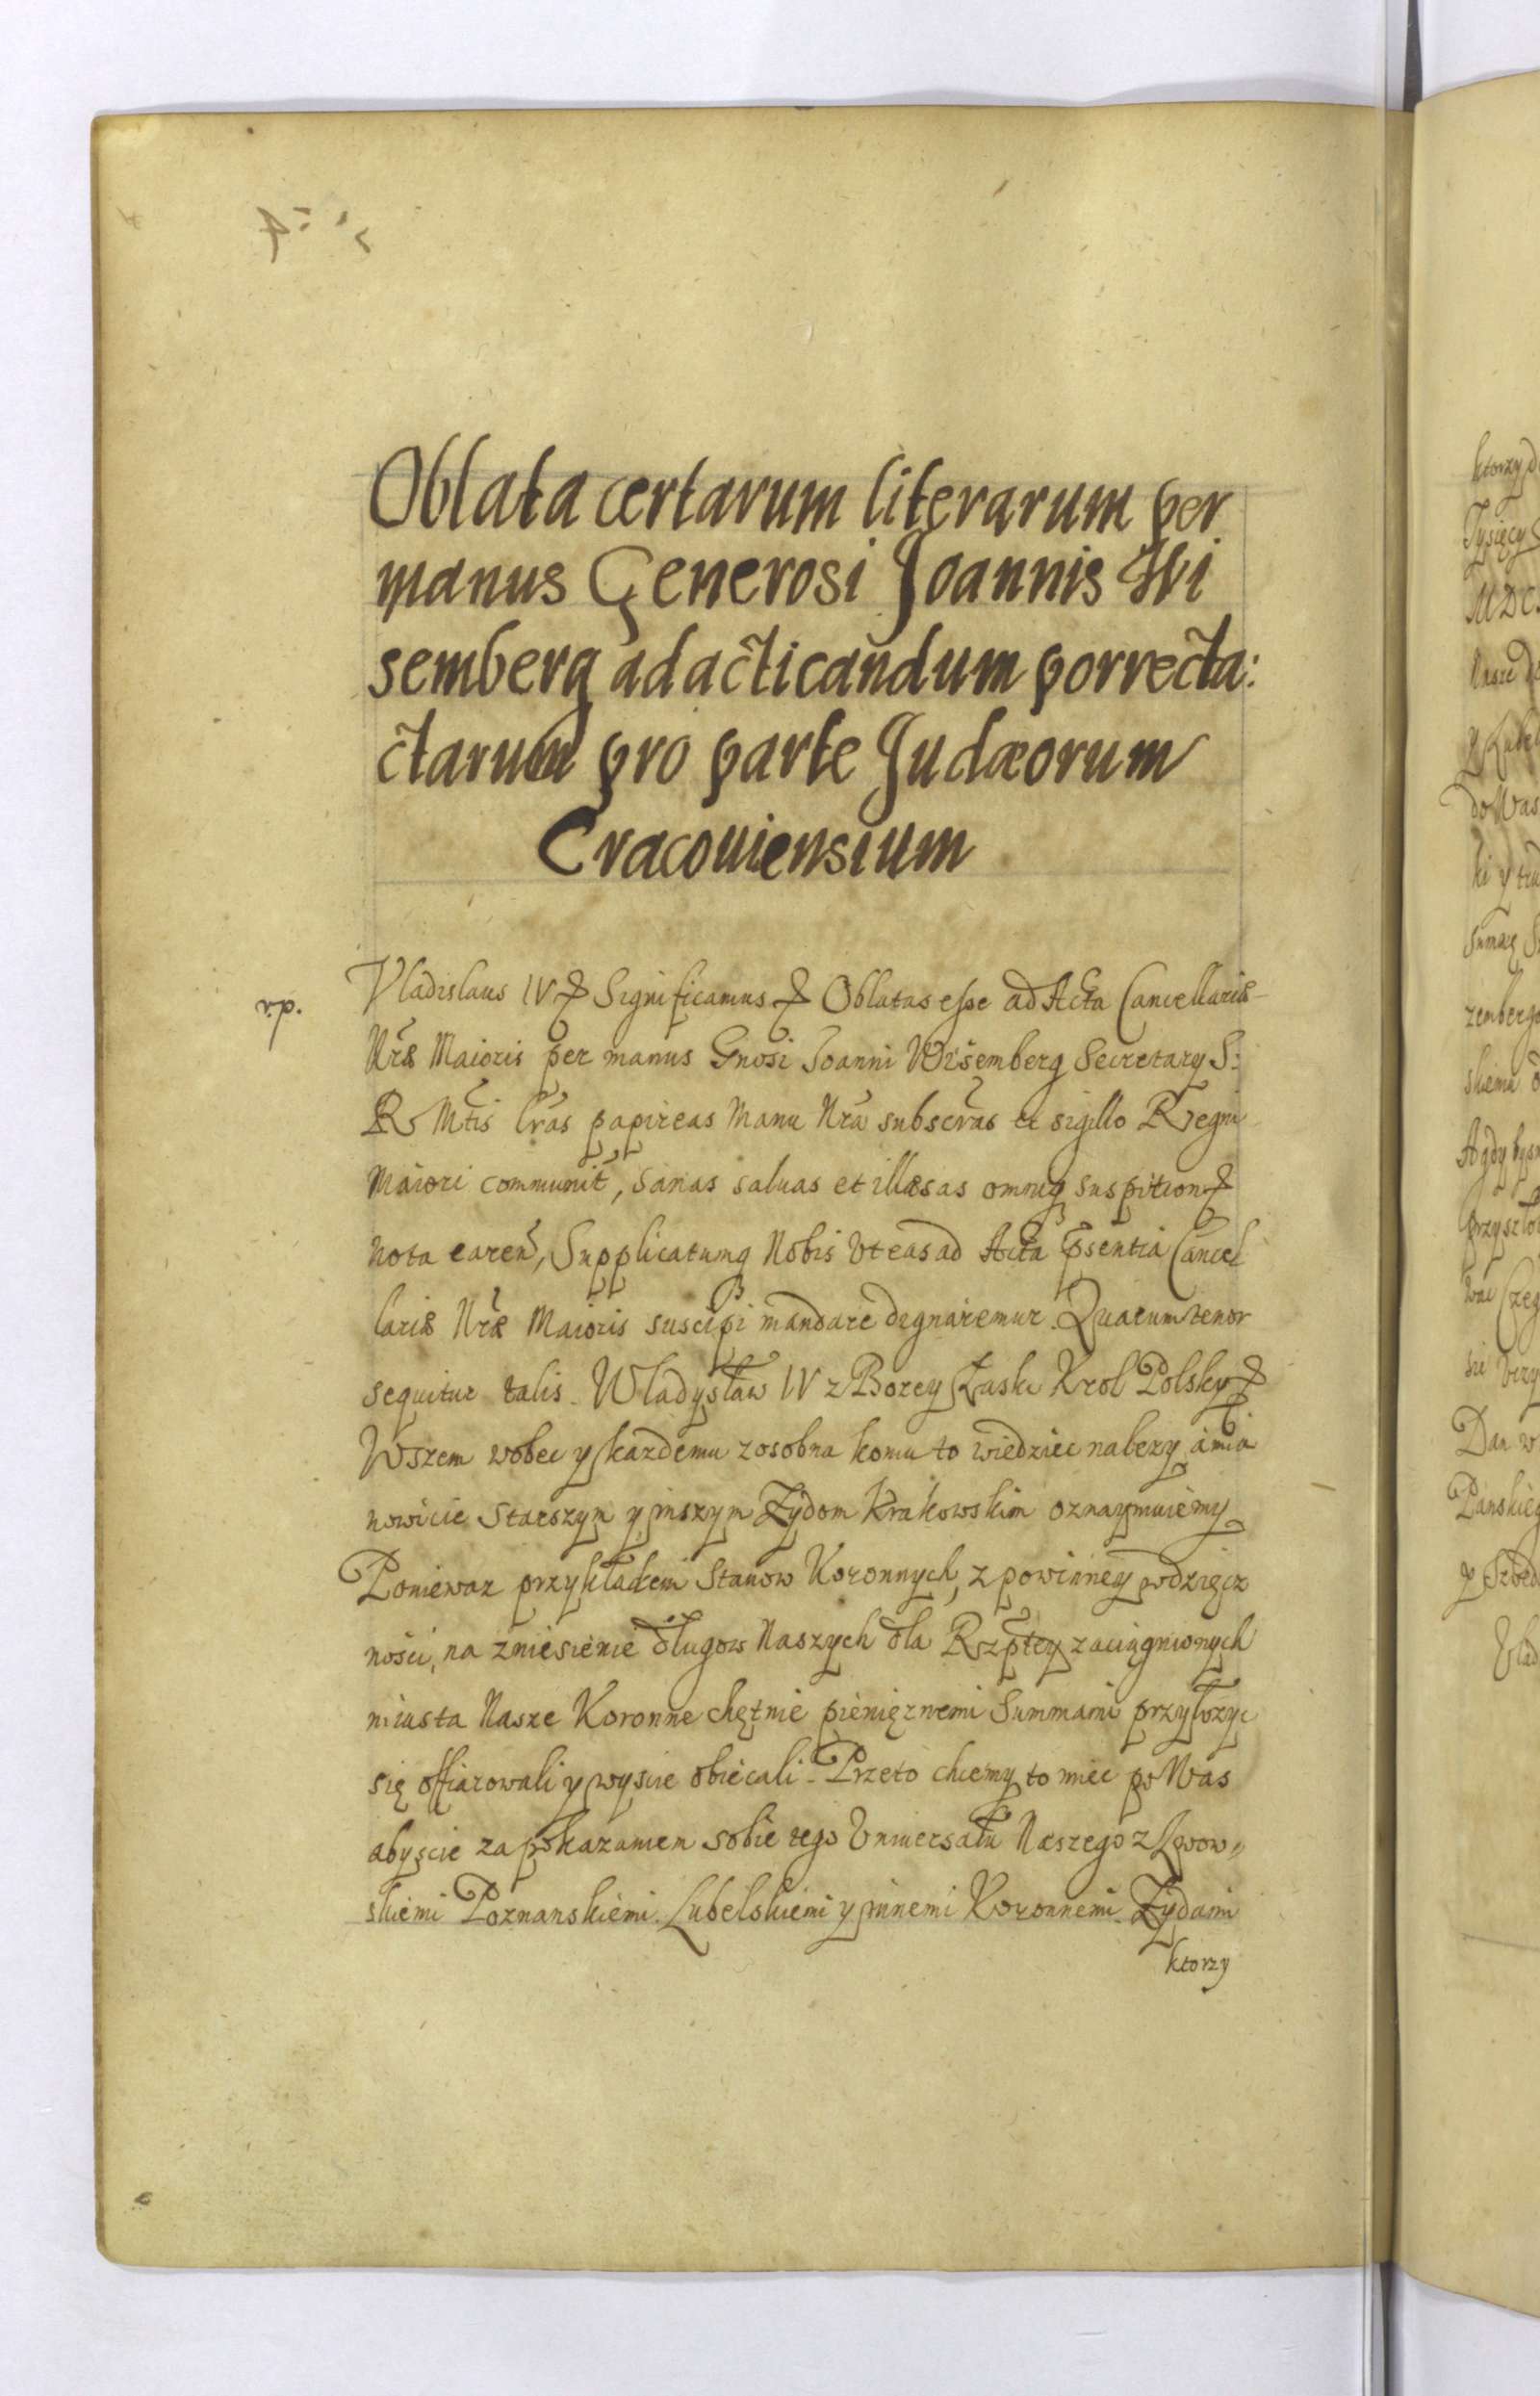 Oblata certarum literarum per
manus Generosi Joannis Wi
semberg ad acticandum porrecta:
ctarum pro parte Judæorum
Cracouiensium
Vladislaus IV Significamus Oblatas esse ad Acta Cancellariæ
Nræ Maioris per manus Gnosi Joanni Wisemberg Secretary S:
R Mtis lras papireas Manu Nra subscras et sigillo Regni
Maiori communit, sanas saluas et illæsas omniq suspition
nota caren, Supplicatumq Nobis Vt eas ad Acta psentia Cancel
lariæ Nræ Maioris suscipi mandare dignaremur. Quarum tenor
sequitur talis. Wladysław IV z Bozey Łaski Krol Polsky
Wszem wobec y kazdemu zosobna komu to wiedziec nalezy amia
nowicie Starszym y inszym Zydom Krakowskim oznaymuiemy
Poniewaz przykładem Stanow Koronnych, z powinney wdzięcz
nosci, na zniesienie długow Naszych dla Rzptey zaciągnionych
miasta Nasze Koronne chętnie pienięznemi Summami przyłozyc
się offiarowali y wyscie obiecali. Przeto chcemy to miec po Was
abyscie za pokazaniem sobie tego Vniuersału Naszego z Lwow„
skiemi Poznanskiemi. Lubelskiemi y innemi Koronnemi Zydami
ktorzy